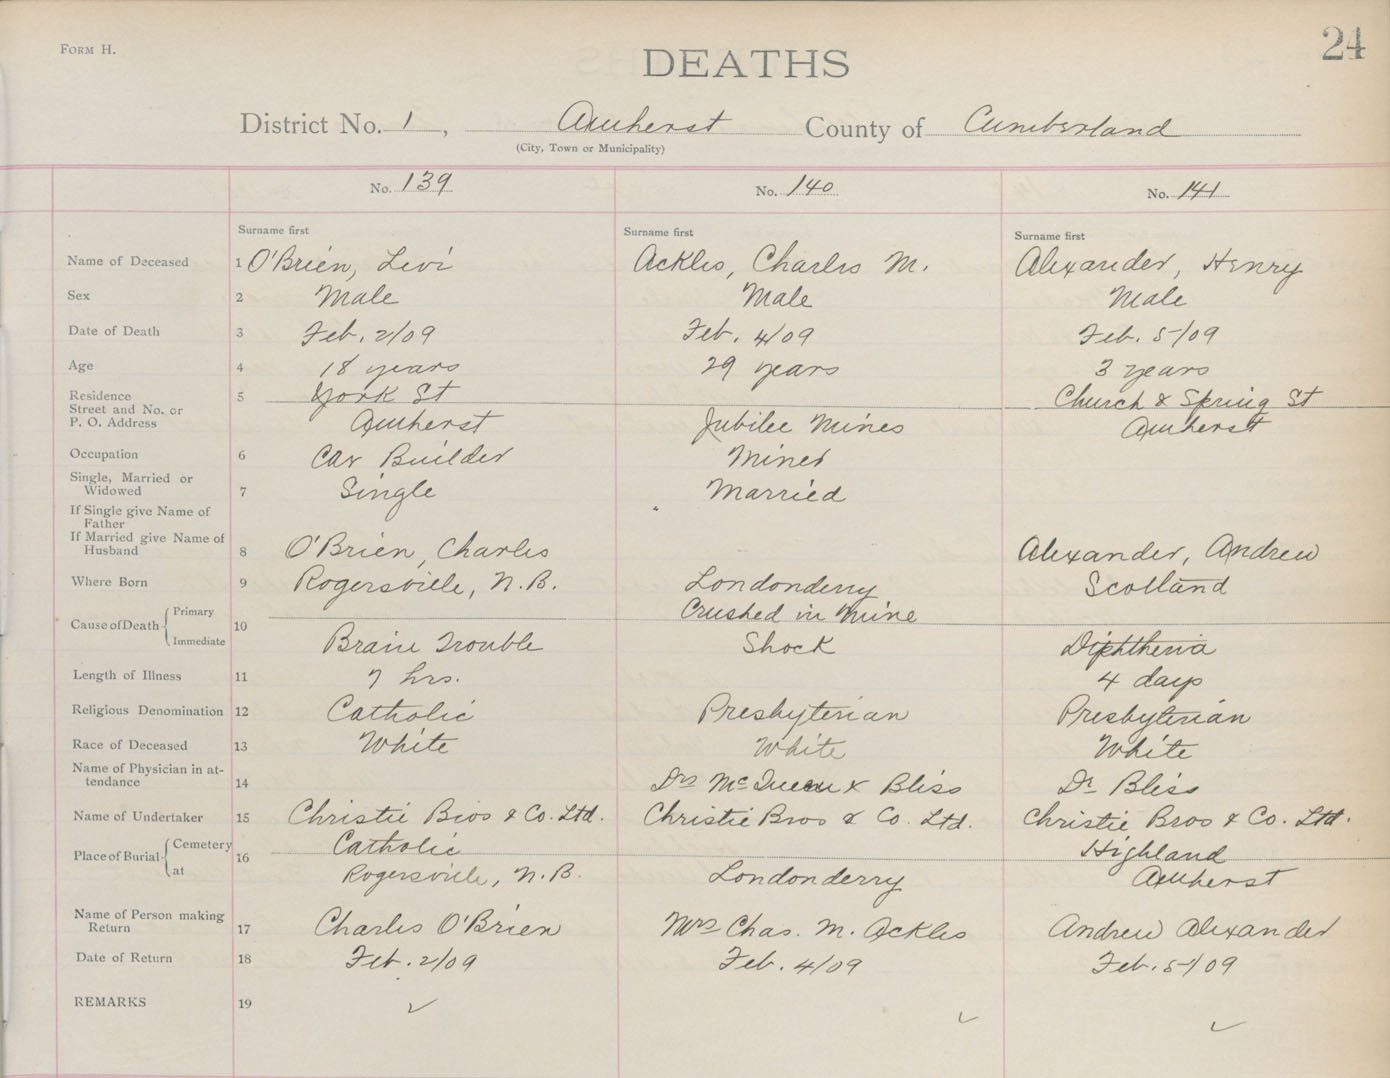 FORM H.
24
DEATHS
District No. 1, Amherst County of Cumberland
(City, Town or Municipality)
No. 139 No. 140 No. 141
Surname first Surname first Surname first
Name of Deceased 1 O'Brien, Levi Ackles, Charles M. Alexander, Henry
Sex 2 Male Male Male
Date of Death 3 Feb. 2/09 Feb. 4/09 Feb. 5/09
Age 4 18 years 29 years 3 years
Residence 5 York St Church & Spring St
Street and No. or
P. O. Address Amherst Jubilee Mines Amherst
Occupation 6 Car Builder Miner
Single, Married or
Widowed 7 Single Married
If Single give Name of
Father
If Married give Name of
Husband 8 O'Brien, Charles Alexander, Andrew
Where Born 9 Rogersville, N.B. Londonderry Scotland
Cause of Death 10 Primary Crushed in Mine
Immediate Brain Trouble Shock Diphtheria
Length of Illness 11 7 hrs. 4 days
Religious Denomination 12 Catholic Presbyterian Presbyterian
Race of Deceased 13 White White White
Name of Physician in at-
tendance 14 Drs McQueen & Bliss Dr Bliss
Name of Undertaker 15 Christie Bros & Co. Ltd. Christie Bros & Co. Ltd. Christie Bros & Co. Ltd.
Place of Burial 16 Cemetery Catholic Highland
at Rogersville, N.B. Londonderry Amherst
Name of Person making
Return 17 Charles O'Brien Mrs Chas. M. Ackles Andrew Alexander
Date of Return 18 Feb. 2/09 Feb. 4/09 Feb. 5/09
REMARKS 19 ✓ ✓ ✓